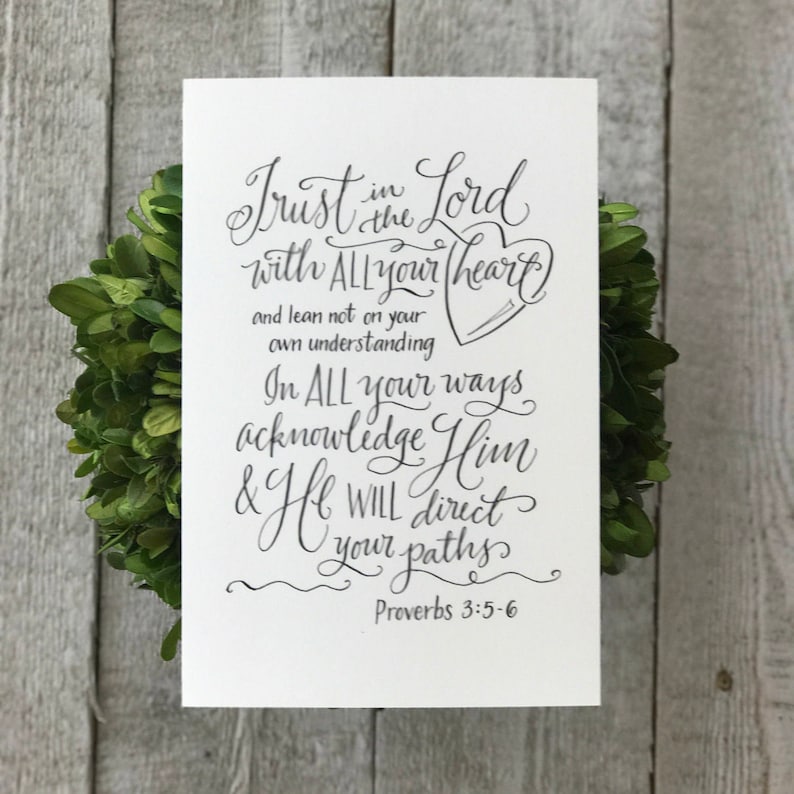 Trust in the Lord
with ALL your heart
and lean not on your
own understanding
In ALL your ways
acknowledge Him
& He WILL direct
your paths
Proverbs 3:5-6